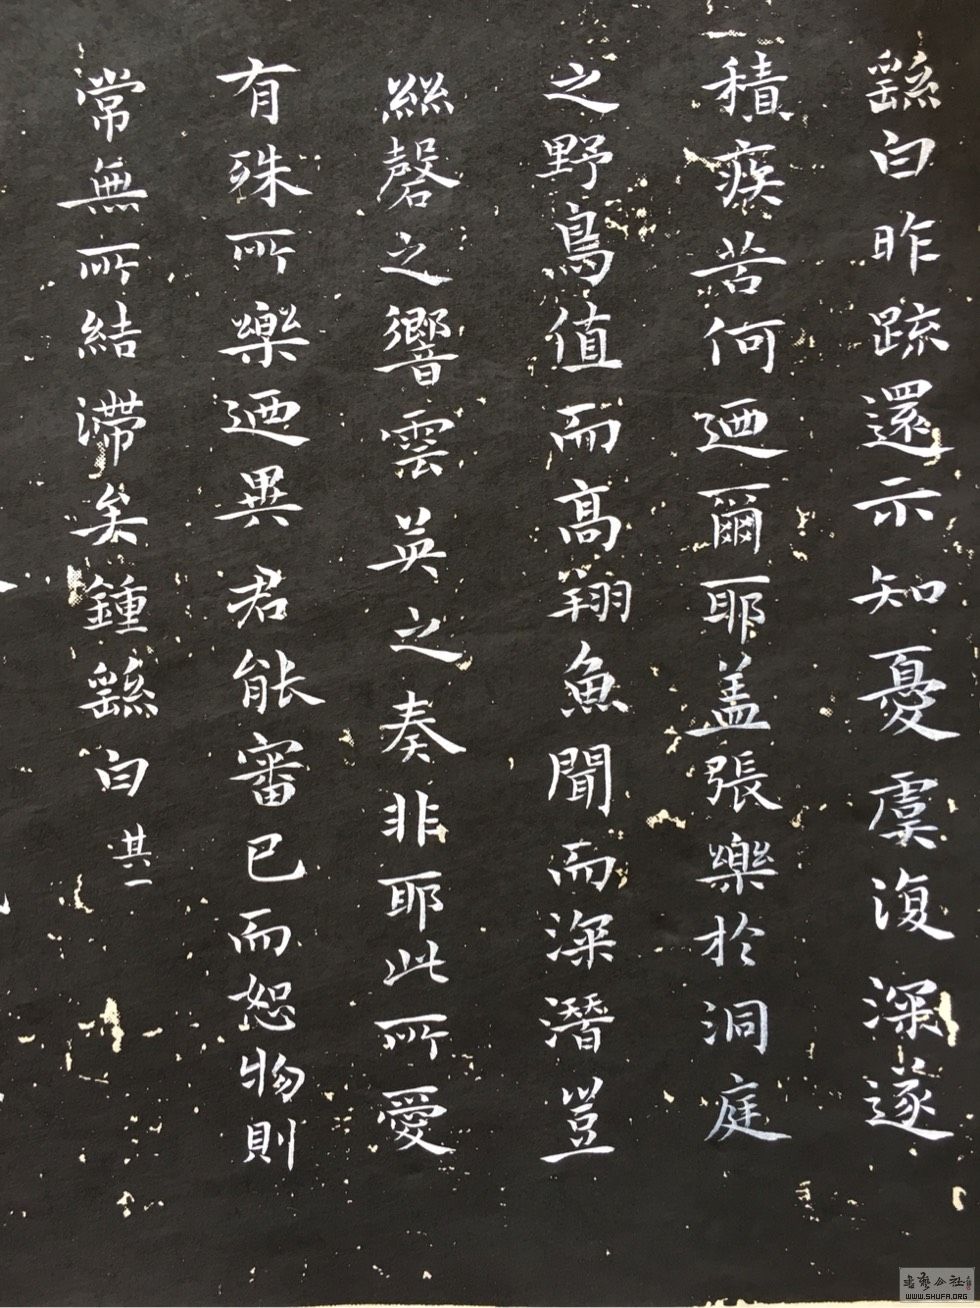 繇白昨疏還示知憂虞復深遂
積疾苦何迺爾耶盖張樂於洞庭
之野鳥值而高翔魚聞而深潛豈
絲磬之響雲英之奏非耶此所愛
有殊所樂迺異君能審己而恕物則
常無所結滯矣鍾繇白 其一
書藝公社
WWW.SHUFA.ORG